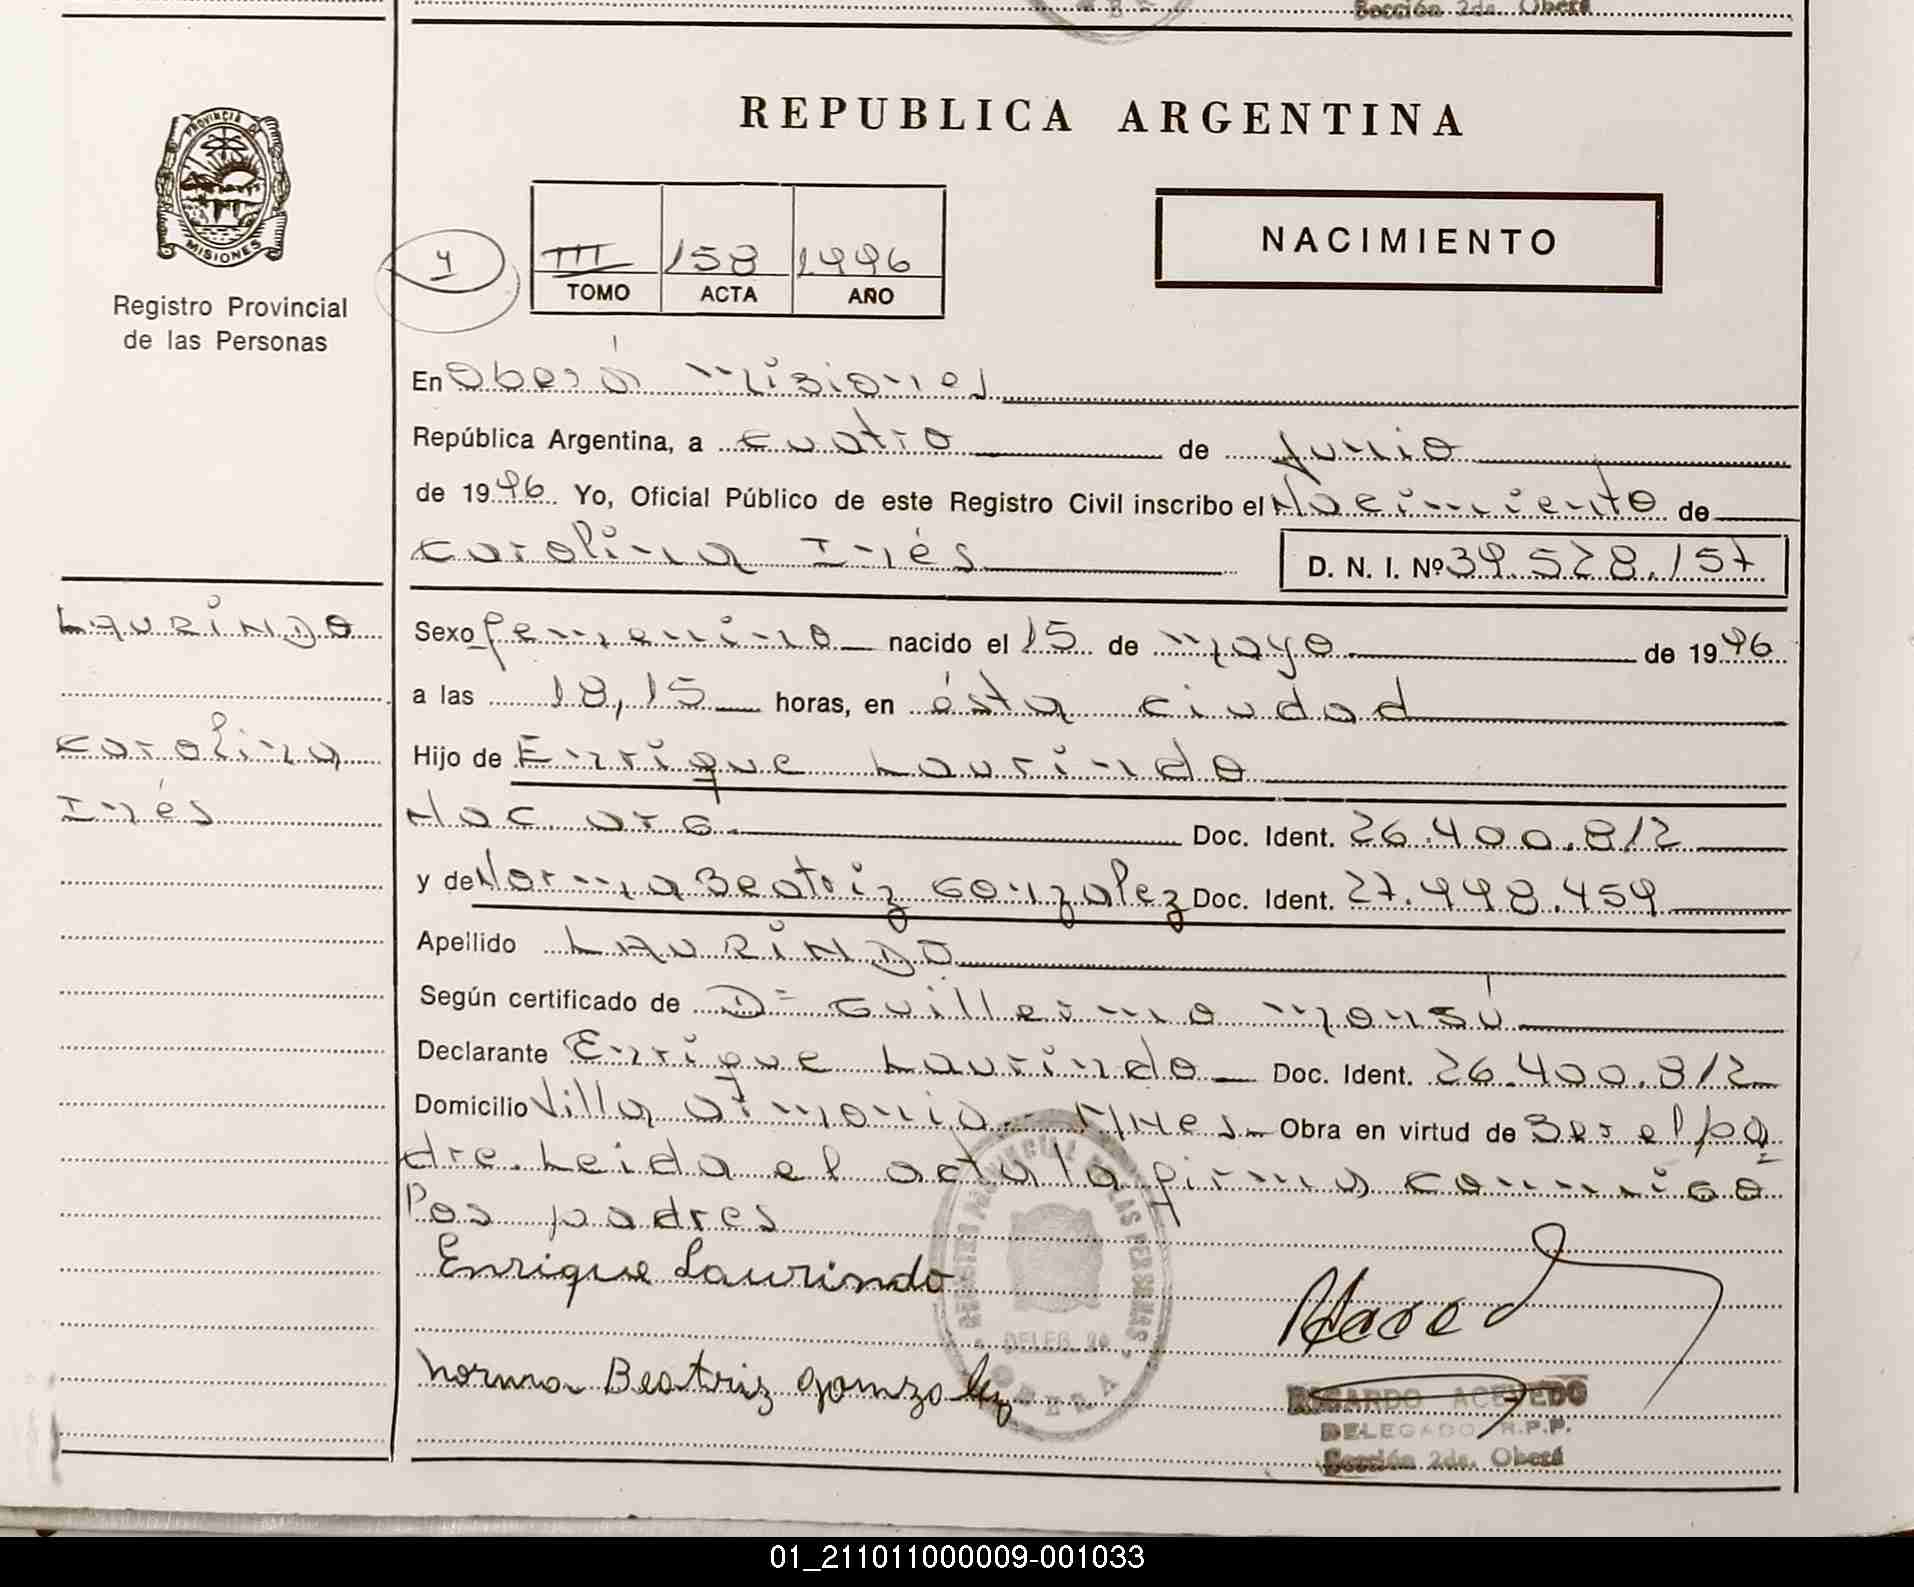 Sección 2da. Oberá
REPUBLICA ARGENTINA
PROVINCIA DE
MISIONES
Registro Provincial
de las Personas
y
III 158 1996
TOMO ACTA AÑO
NACIMIENTO
En Oberá Misiones
República Argentina, a cuatro de Junio
de 1996 Yo, Oficial Público de este Registro Civil inscribo el Nacimiento de
Carolina Inés D. N. I. Nº 39.528.157
LAURINDO
Carolina
Inés
Sexo femenino nacido el 15 de mayo de 1996
a las 18,15 horas, en ésta ciudad
Hijo de Enrique Laurindo
Nac. arg. Doc. Ident. 26.400.812
y de Norma Beatriz Gonzalez Doc. Ident. 27.998.459
Apellido LAURINDO
Según certificado de Dr Guillermo Monsú
Declarante Enrique Laurindo Doc. Ident. 26.400.812
Domicilio Villa Mnes. Obra en virtud de ser el pa
dre. Leida el acta la firman conmigo
los padres
Enrique Laurindo
Norma Beatriz Gonzalez
REGISTRO PROVINCIAL DE LAS PERSONAS
DELEG. 2a
OBERA
RICARDO ACEVEDO
DELEGADO R.P.P.
Sección 2da. Oberá
01_211011000009-001033